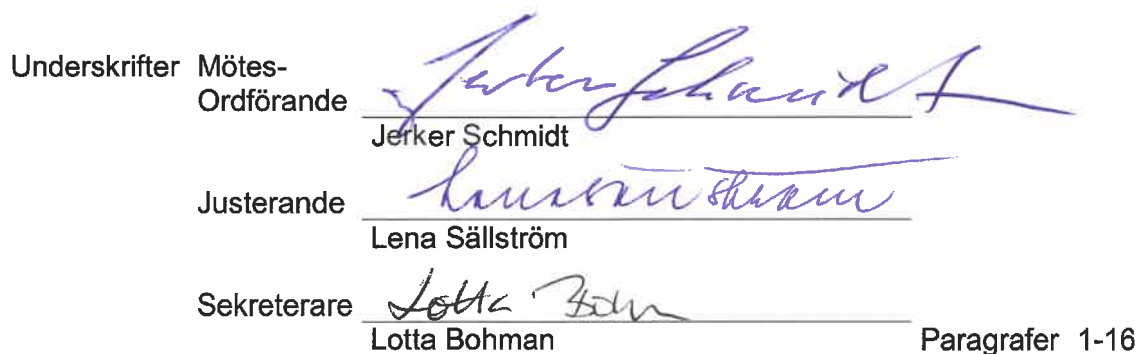 Underskrifter Mötes-
Ordförande Jerker Schmidt
Jerker Schmidt
Justerande Lena Sällström
Lena Sällström
Sekreterare Lotta Bohm
Lotta Bohman Paragrafer 1-16